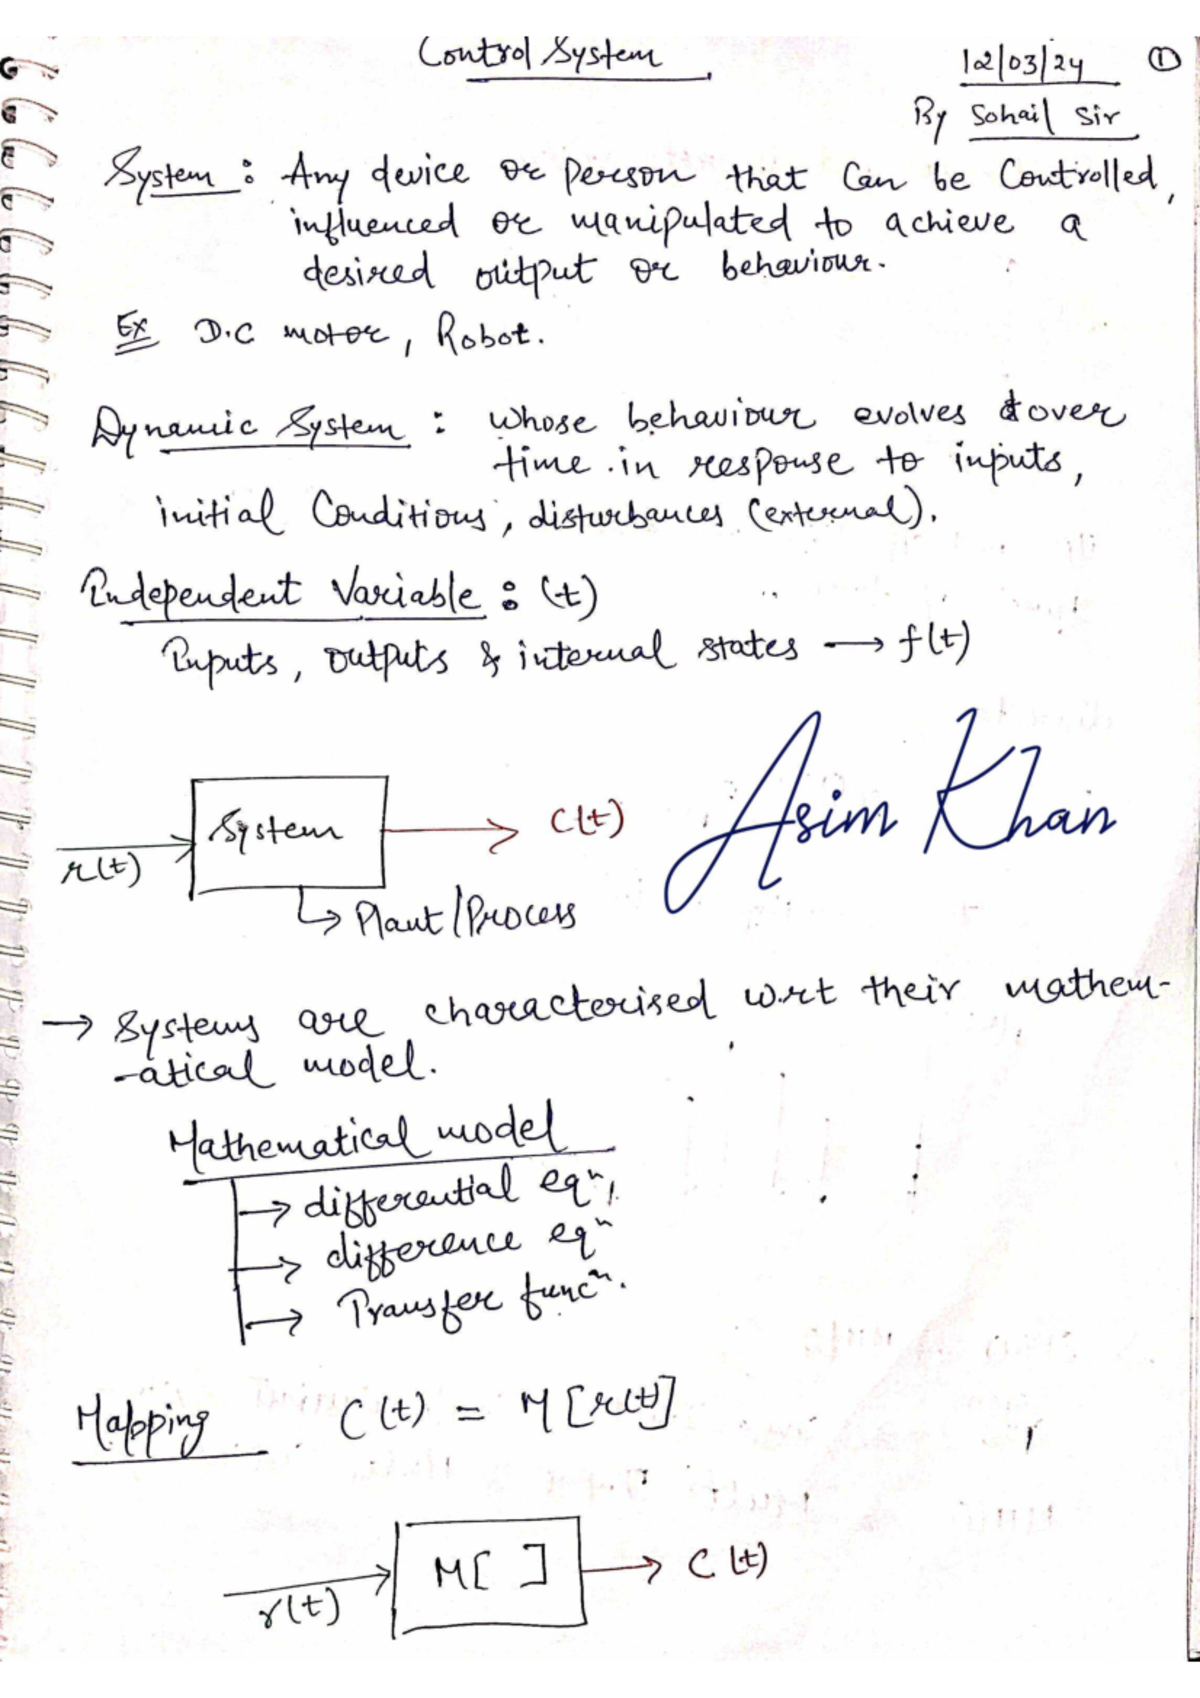 Control System
12/03/24 ①
By Sohail Sir
System : Any device or Person that Can be Controlled,
influenced or manipulated to achieve a
desired output or behaviour.
Ex D.C motor, Robot.
Dynamic System : whose behaviour evolves over
time in response to inputs,
initial Conditions, disturbances (external).
Independent Variable : (t)
Inputs, outputs & internal states → f(t)
System
r(t)
C(t)
Plant/Process
Asim Khan
→ Systems are characterised w.r.t their mathem-
-atical model.
Mathematical model
→ differential eqⁿ,
→ difference eqⁿ
→ Transfer funcⁿ.
Mapping C(t) = M[r(t)]
M[ ]
r(t)
→ C(t)